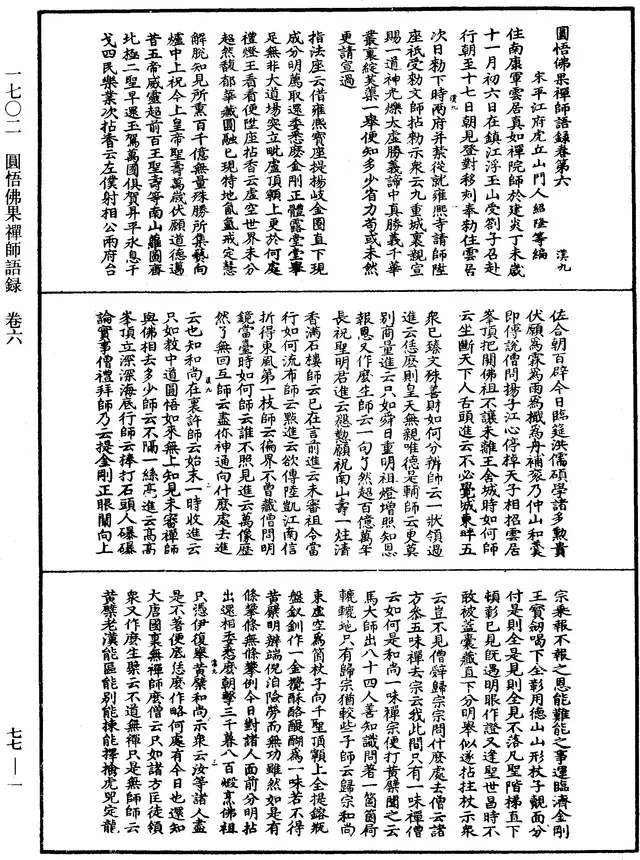 圓悟佛果禪師語録卷第六
漢九
宋平江府虎丘山門人紹隆等編
住南康軍雲居真如禪院師於建炎丁未歲
十一月初六日在鎮江浮玉山受劄子召赴
行朝至十七日朝見登對移刻奉勑住雲居
次日勑下時兩府并禁從就雍熙寺請師陞
座祇受勑文師拈勑示衆云九重城裏親宣
賜一道神光爍太虛勝義諦中真勝義千華
叢裏綻芙蕖一舉便知多少省力苟或未然
更請宣過
指法座云借雍熙寶座提楊岐金圈直下現
成分明薦取還委悉麽金剛正體露堂堂舉
足無非大道場突立毗盧頂𩕳上更於何處
禮燈王看看便陞座拈香云虛空世界未分
超然馥郁華藏圓融已現特地氤氳戒定慧
解脫知見所熏百千億無量殊勝所集爇向
爐中上祝今上皇帝聖壽萬歲伏願道德邁
昔五帝威靈超前百王聖壽等南山蘿圖齊
北極二聖早還玉駕萬國俱賀昇平永息干
戈四民樂業次拈香云左僕射相公兩府台
佐合朝百辟今日臨筵洪儒碩學諸多勳貴
伏願爲霖爲雨爲檝爲舟補衮乃仲山和羹
即傅說僧問揚子江心停棹天子相招雲居
峯頂把關佛祖不讓未離王舍城時如何師
云坐斷天下人舌頭進云不必覺城東畔五
衆已臻文殊善財如何分辨師云一狀領過
進云恁麽則皇天無親唯德是輔師云更莫
別商量進云只如舜日重明祖燈增照知恩
報恩又作麽生師云一句了然超百億萬年
長祝聖明君進云慇懃願祝南山壽一炷清
香滿石樓師云已在言前進云未審祖令當
行如何流布師云點進云欲傳陸凱江南信
折得東風第一枝師云徧界不曾藏僧問明
鏡當臺時如何師云誰不照見進云萬像歷
然了無回互師云盡你神通向什麽處去進
云也知和尚在裏許師云始末一時收進云
只如教中道圓悟如來無上知見未審禪師
與佛相去多少師云不隔一絲毫進云高高
峯頂立深深海底行師云棒打石頭人嚗嚗
論實事僧禮拜師乃云提金剛正眼闡向上
宗乘報不報之恩能難能之事運臨濟金剛
王寶劒喝下全彰用德山山形杖子覿面分
付是則全是見則全見不落凡聖階梯直下
頓彰已見旣遇明眼作證又逢聖世昌時不
敢被蓋囊藏直下分明舉似遂拈拄杖示衆
云豈不見僧辭歸宗宗問什麽處去僧云諸
方參五味禪去宗云我此間只有一味禪僧
云如何是和尚一味禪宗便打黃檗聞之云
馬大師出八十四人善知識問著一箇箇屙
轆轆地只有歸宗猶較些子師云歸宗和尚
束虛空爲箇杖子向千聖頂𩕳上全提鎔瓶
盤釵釧作一金攪酥酪醍醐爲一味若不得
黃檗明辨端倪洎險勞而無功雖然如是有
條攀條無條攀例今日對諸人面前分明拈
出還相委悉麽朝擊三千暮八百蝦烹佛祖
只憑伊復舉黃檗和尚示衆云汝等諸人盡
是不著便底恁麽作略何處有今日也還知
大唐國裏無禪師麽僧云只如諸方匡徒領
衆又作麽生檗云不道無禪只是無師師云
黃檗老漢能區能別能揀能擇擒虎兕定龍
一七〇二　圓悟佛果禪師語録　卷六
七七—一